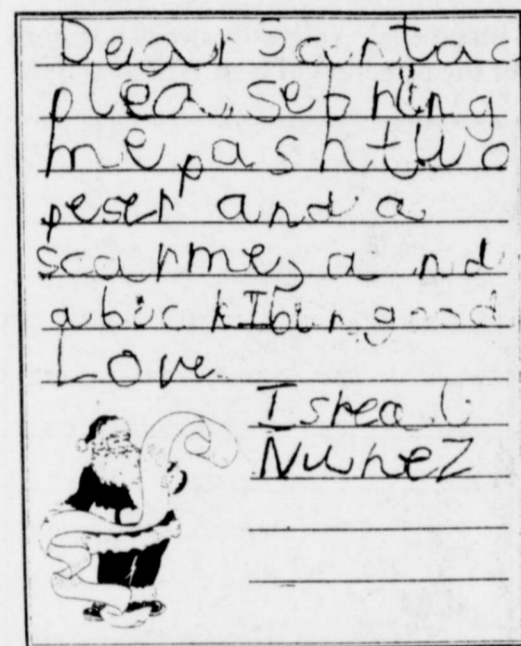 Dear Santa
please bring
me pash two
peser and a
scarme, and
a bic k I bin good
Love
Isreal
Nunez